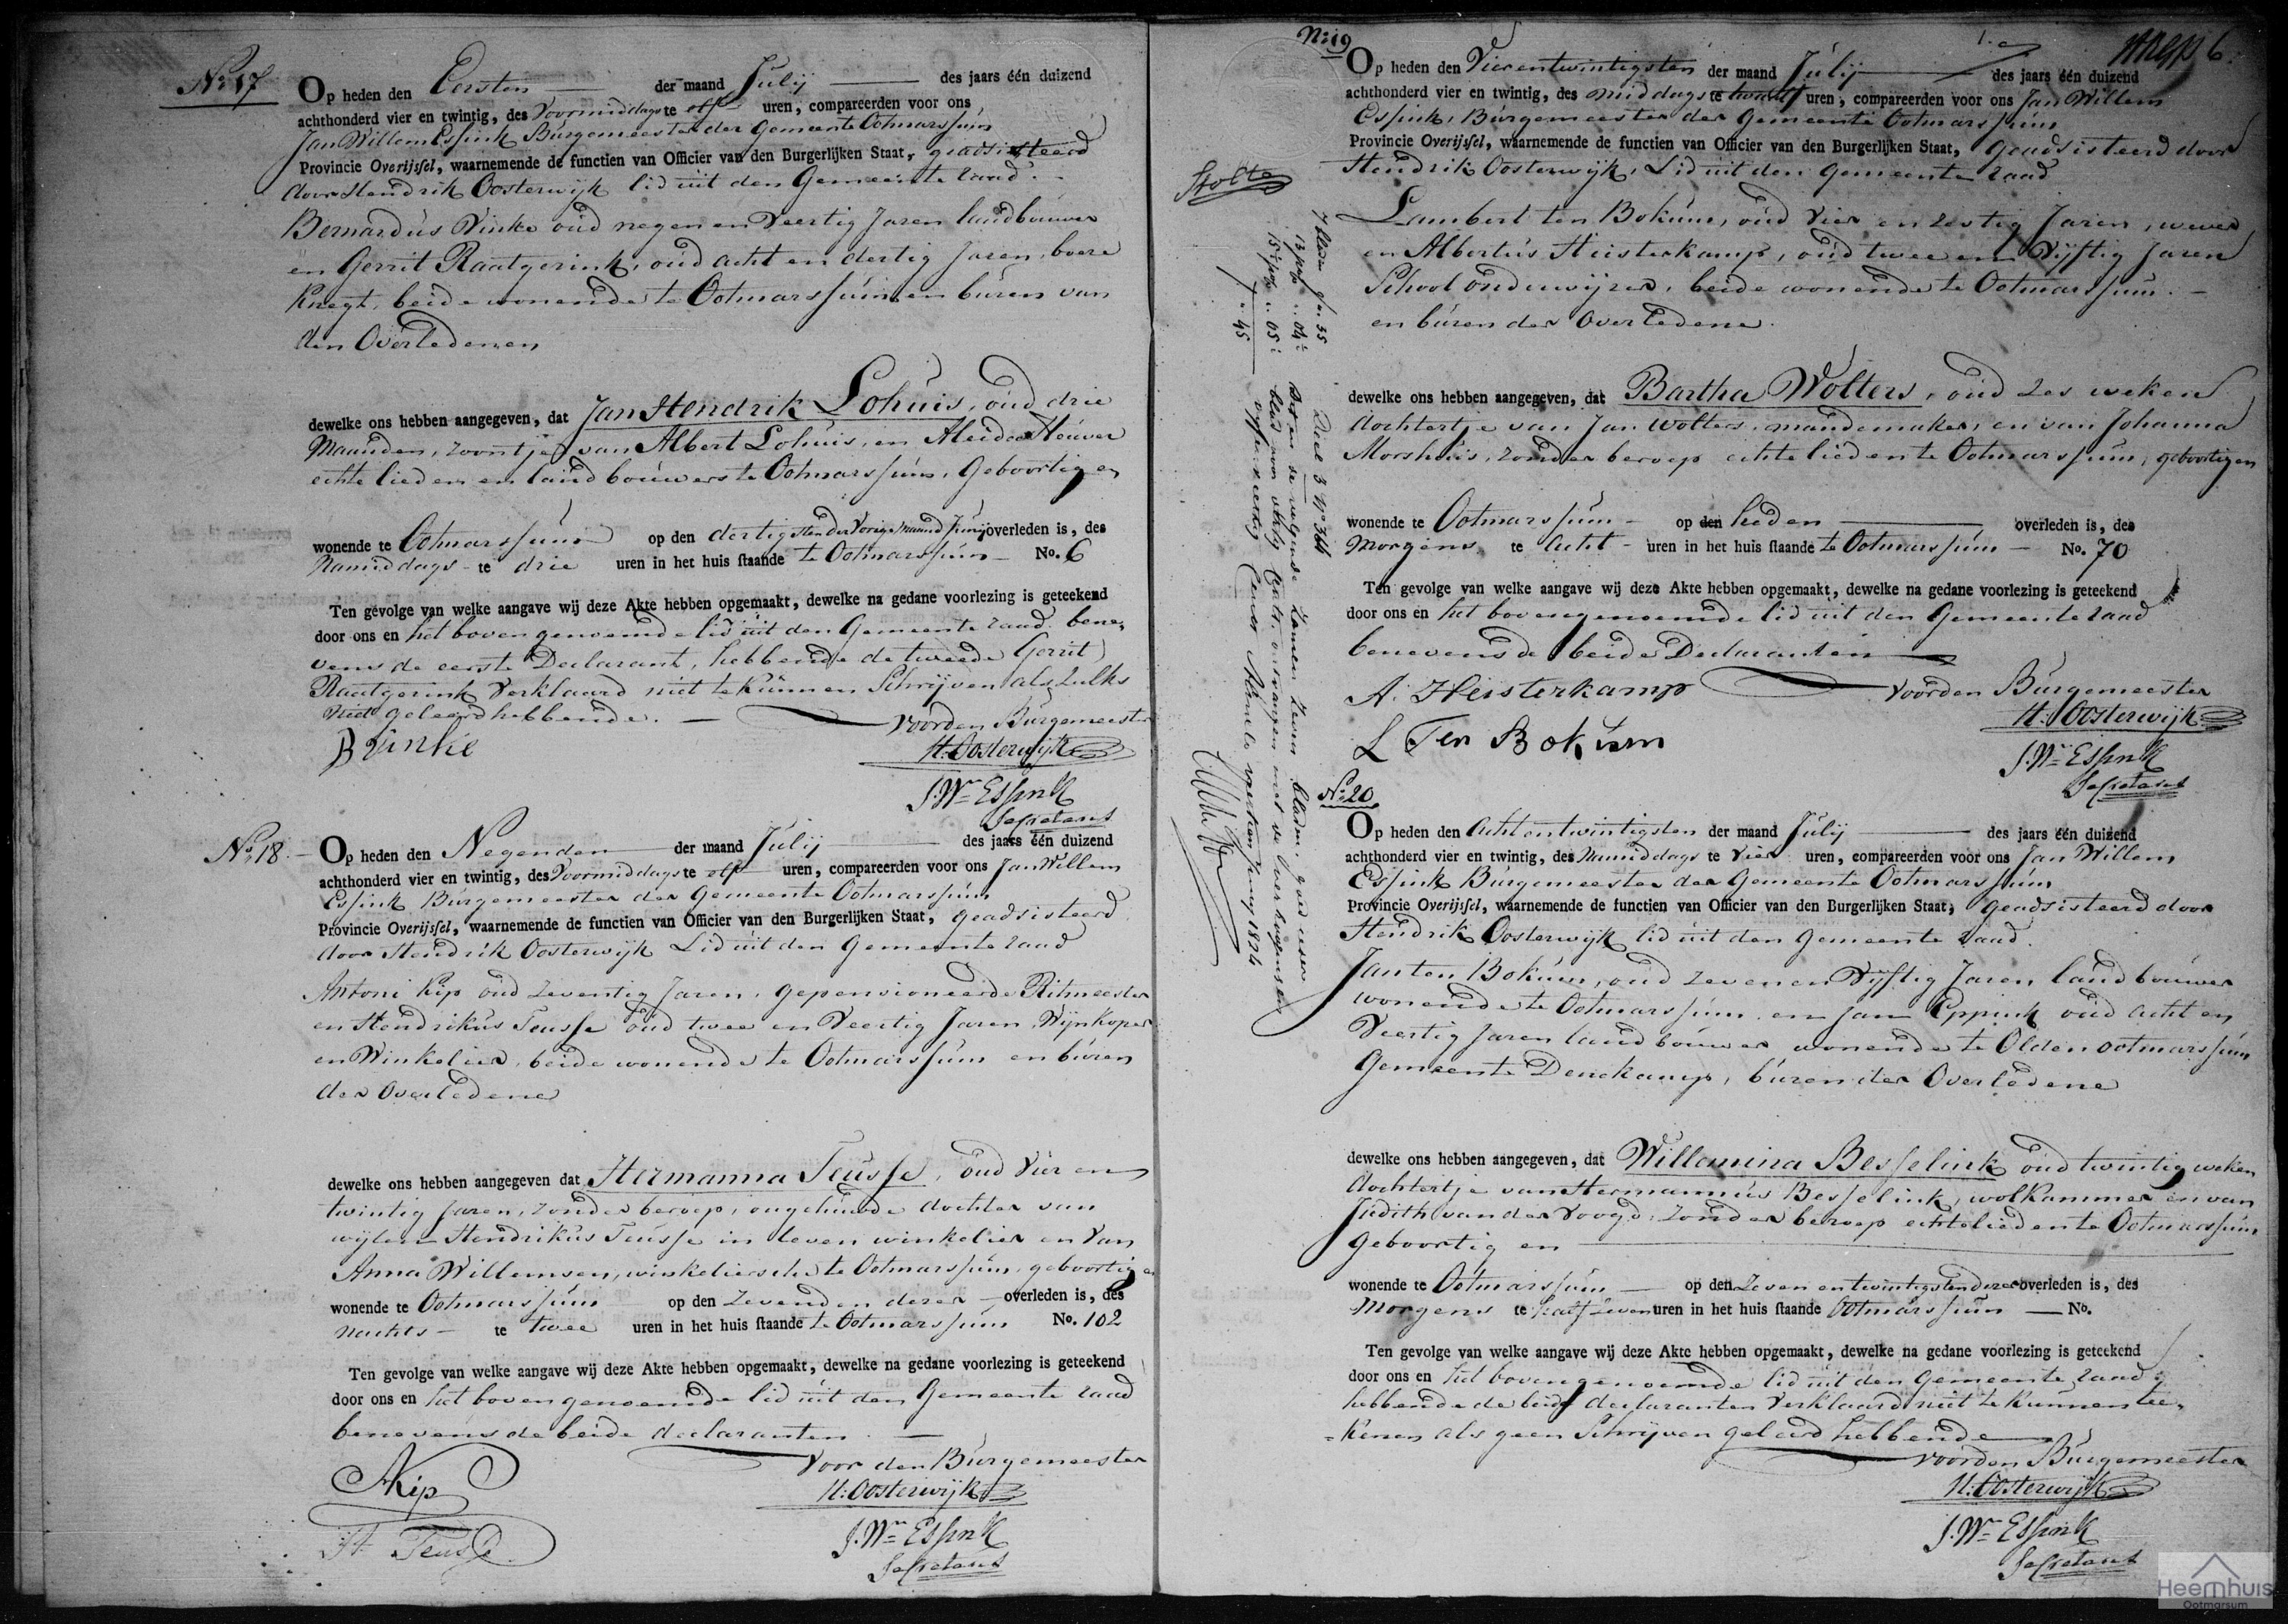 No 17
Op heden den Eersten der maand Julij des jaars één duizend
achthonderd vier en twintig, des Voormiddags te elf uren, compareerden voor ons
Jan Willem Essink Burgemeester der Gemeente Ootmarssum
Provincie Overijssel, waarnemende de functien van Officier van den Burgerlijken Staat, geadsisteerd
door Hendrik Oosterwijk lid uit den Gemeente raad
Bernardus Vinke oud negen en Veertig Jaren landbouwer
en Gerrit Raatgerink, oud acht en dertig Jaren, boere
Knegt, beide wonende te Ootmarssum en buren van
den Overledenen
dewelke ons hebben aangegeven, dat Jan Hendrik Lohuis, oud drie
Maanden, zoontje van Albert Lohuis, en Aleida Heuver
echte lieden en landbouwers te Ootmarssum, Geboortig en
wonende te Ootmarssum op den dertigsten der Vorige maand Junij overleden is, des
Namiddags te drie uren in het huis staande te Ootmarssum No. 6
Ten gevolge van welke aangave wij deze Akte hebben opgemaakt, dewelke na gedane voorlezing is geteekend
door ons en het boven genoemde lid uit den Gemeente raad bene-
vens de eerste Declarant, hebbende de tweede Gerrit
Raatgerink Verklaard niet te Kunnen Schrijven als zulks
niet geleerd hebbende.
voor den Burgemeester
B Vinke
H: Oosterwijk
J. Wm Essink
Secretaris
No 18.
Op heden den Negenden der maand Julij des jaars één duizend
achthonderd vier en twintig, des Voormiddags te elf uren, compareerden voor ons Jan Willem
Essink Burgemeester der Gemeente Ootmarssum
Provincie Overijssel, waarnemende de functien van Officier van den Burgerlijken Staat, geadsisteerd
door Hendrik Oosterwijk Lid uit den Gemeente raad
Antoni Kip oud Zeventig Jaren, gepensioneerde Ritmeester
en Hendrikus Teusse oud twee en Veertig Jaren Wijnkoper
en Winkelier, beide wonende te Ootmarssum en buren
der Overledene
dewelke ons hebben aangegeven dat Hermanna Teusse, oud Vier en
twintig Jaren, zonder beroep, ongehuwde dochter van
wijlen Hendrikus Teusse in leven winkelier en Van
Anna Willemsen, winkeliersche te Ootmarssum, geboortig en
wonende te Ootmarssum op den Zevenden dezer overleden is, des
Nachts te twee uren in het huis staande te Ootmarssum No. 102
Ten gevolge van welke aangave wij deze Akte hebben opgemaakt, dewelke na gedane voorlezing is geteekend
door ons en het boven genoemde lid uit den Gemeente raad
benevens de beide declaranten
Voor den Burgemeester
AKip
H: Oosterwijk
H Teusse
J. Wm Essink
Secretaris
No 19
Op heden den Vierentwintigsten der maand Julij des jaars één duizend
achthonderd vier en twintig, des middags te twaalf uren, compareerden voor ons Jan Willem
Essink, Burgemeester der Gemeente Ootmarssum
Provincie Overijssel, waarnemende de functien van Officier van den Burgerlijken Staat, Geadsisteerd door
Hendrik Oosterwijk, Lid uit den Gemeente raad
Lambert ten Bokum, oud Vier en zestig Jaren, wever
en Albertus Heisterkamp, oud twee en Vijftig Jaren
School onderwijzer, beide wonende te Ootmarssum
en buren der Overledene.
dewelke ons hebben aangegeven, dat Bartha Wolters, oud zes weken
dochtertje van Jan Wolters, mandemaker, en van Johanna
Morshuis, zonder beroep echtelieden te Ootmarssum, geboortig en
wonende te Ootmarssum op den heden overleden is, des
Morgens te Acht uren in het huis staande te Ootmarssum No. 70
Ten gevolge van welke aangave wij deze Akte hebben opgemaakt, dewelke na gedane voorlezing is geteekend
door ons en het bovengenoemde lid uit den Gemeente raad
benevens de beide Declaranten
A. Heisterkamp
voor den Burgemeester
H. Oosterwijk
L Ten Bokum
J. Wm Essink
Secretaris
No 20
Op heden den Achtentwintigsten der maand Julij des jaars één duizend
achthonderd vier en twintig, des Namiddags te Vier uren, compareerden voor ons Jan Willem
Essink Burgemeester der Gemeente Ootmarssum
Provincie Overijssel, waarnemende de functien van Officier van den Burgerlijken Staat, Geadsisteerd door
Hendrik Oosterwijk lid uit den Gemeente raad.
Jan ten Bokum, oud zeven en Vijftig Jaren, landbouwer
wonende te Ootmarssum en Jan Eppink oud acht en
Veertig Jaren landbouwer wonende te Olden ootmarssum
Gemeente Denekamp, buren der Overledene
dewelke ons hebben aangegeven, dat Willemina Besselink oud twintig weken
dochtertje van Hermannus Besselink, wolkammer en van
Judith van der Voogd, zonder beroep echtelieden te Ootmarssum
Geboortig en
wonende te Ootmarssum op den Zeven en twintigsten dezer overleden is, des
Morgens te half zeven uren in het huis staande Ootmarssum No.
Ten gevolge van welke aangave wij deze Akte hebben opgemaakt, dewelke na gedane voorlezing is geteekend
door ons en het bovengenoemde lid uit den Gemeente raad
hebbende de beide declaranten Verklaard niet te Kunnen tee-
=kenen als geen Schrijven geleerd hebbende
voor den Burgemeester
H: Oosterwijk
J. Wm Essink
Secretaris
Stolte
Deel 3 No 364
Heemhuis
Ootmarsum